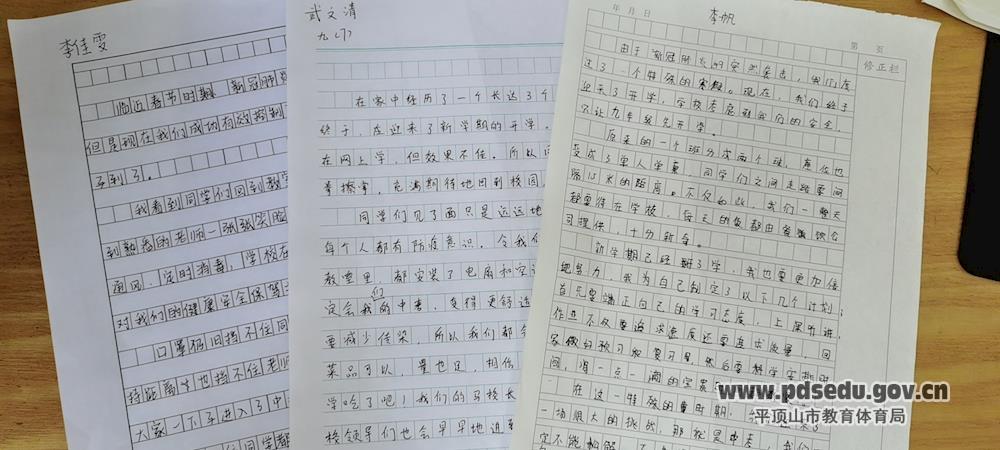 李佳雯
临近春节时期，新冠肺炎
但是现在我们成功有效控制
我看到同学们回到教室
到熟悉的老师一张张笑脸
通风，定时消毒，学校在
对我们的健康安全保驾
口罩仍旧挡不住同
持距离也挡不住老师
大家一下子进入了中
同学都
武文清
九(7)
在家中经历了一个长达3个
终于，在迎来了新学期的开学。
在网上学，但效果不佳。所以
拳擦掌，充满期待地回到校园。
同学们见了面只是远远地
每个人都有防疫意识。令我
教室里，都安装了电扇和空
定会我们的中考，变得更舒适
要减少传染，所以我们都
菜品可以，量也足，相信
学吃了吧！我们的马校长
校领导们也会早早地
年 月 日
李帆
第 页
修正栏
由于新冠肺炎的突然袭击，我们度
过了一个特殊的寒假。现在，我们终于
迎来了开学，学校考虑到我们的安全，
只让九年级先开学。
原来的一个班分成两个班，座位也
变成了单人单桌，同学们之间走路要间
隔1.5米的距离。不仅如此，我们一整天
都要待在学校，每天的饭都由餐饮公
司提供，十分新奇。
新学期已经开了学，我也要更加倍
地努力，我为自己制定了以下几个计划：
首先要端正自己的学习态度，上课听讲，
作业不仅要追求速度还要追求质量，回
家做好预习和复习；然后要科学安排时
间，将一点一滴的
在这一特殊的时期，
一场很大的挑战，那就是中考，我们
定不能松懈，
www.pdsedu.gov.cn
平顶山市教育体育局